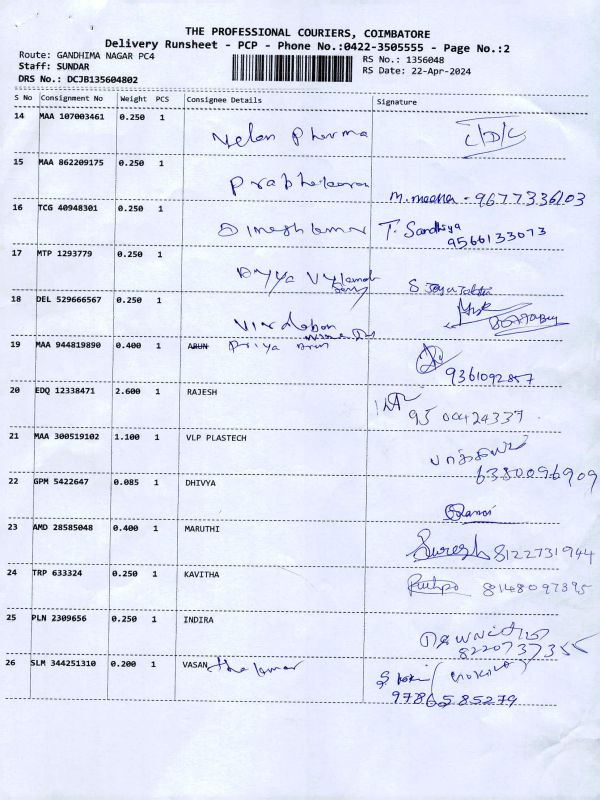 THE PROFESSIONAL COURIERS, COIMBATORE
Delivery Runsheet - PCP - Phone No.:0422-3505555 - Page No.:2
Route: GANDHIMA NAGAR PC4
RS No.: 1356048
Staff: SUNDAR
RS Date: 22-Apr-2024
DRS No.: DCJB135604802
S No Consignment No Weight PCS Consignee Details Signature
14 MAA 107003461 0.250 1
Velan Pharma C/D/C
15 MAA 862209175 0.250 1
Prabhakaran M. meena - 9677336103
16 TCG 40948301 0.250 1
Dineshkumar T. Sandhiya
9566133073
17 MTP 1293779 0.250 1
18 DEL 529666567 0.250 1
19 MAA 944819890 0.400 1 ARUN Priya
9361092857
20 EDQ 12338471 2.600 1 RAJESH
9500424337
21 MAA 300519102 1.100 1 VLP PLASTECH
6380096909
22 GPM 5422647 0.085 1 DHIVYA
23 AMD 28585048 0.400 1 MARUTHI
Suresh 8122731944
24 TRP 633324 0.250 1 KAVITHA
8148097395
25 PLN 2309656 0.250 1 INDIRA
8220737355
26 SLM 344251310 0.200 1 VASAN
9786585279